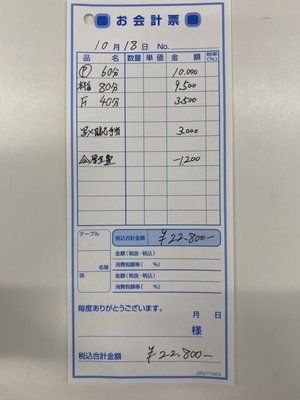 お会計票
10月18日 No.
品 名 数量 単価 金 額 税率(%)
Ⓟ 60分 10,000
80分 9,500
F 40分 3,500
手当 3,000
厚生費 -1,200
テーブル 税込合計金額 ¥22.800-
名様
金額(税抜・税込)
消費税額等( %)
係
金額(税抜・税込)
消費税額等( %)
毎度ありがとうございます。
月 日
様
税込合計金額 ¥22.800-